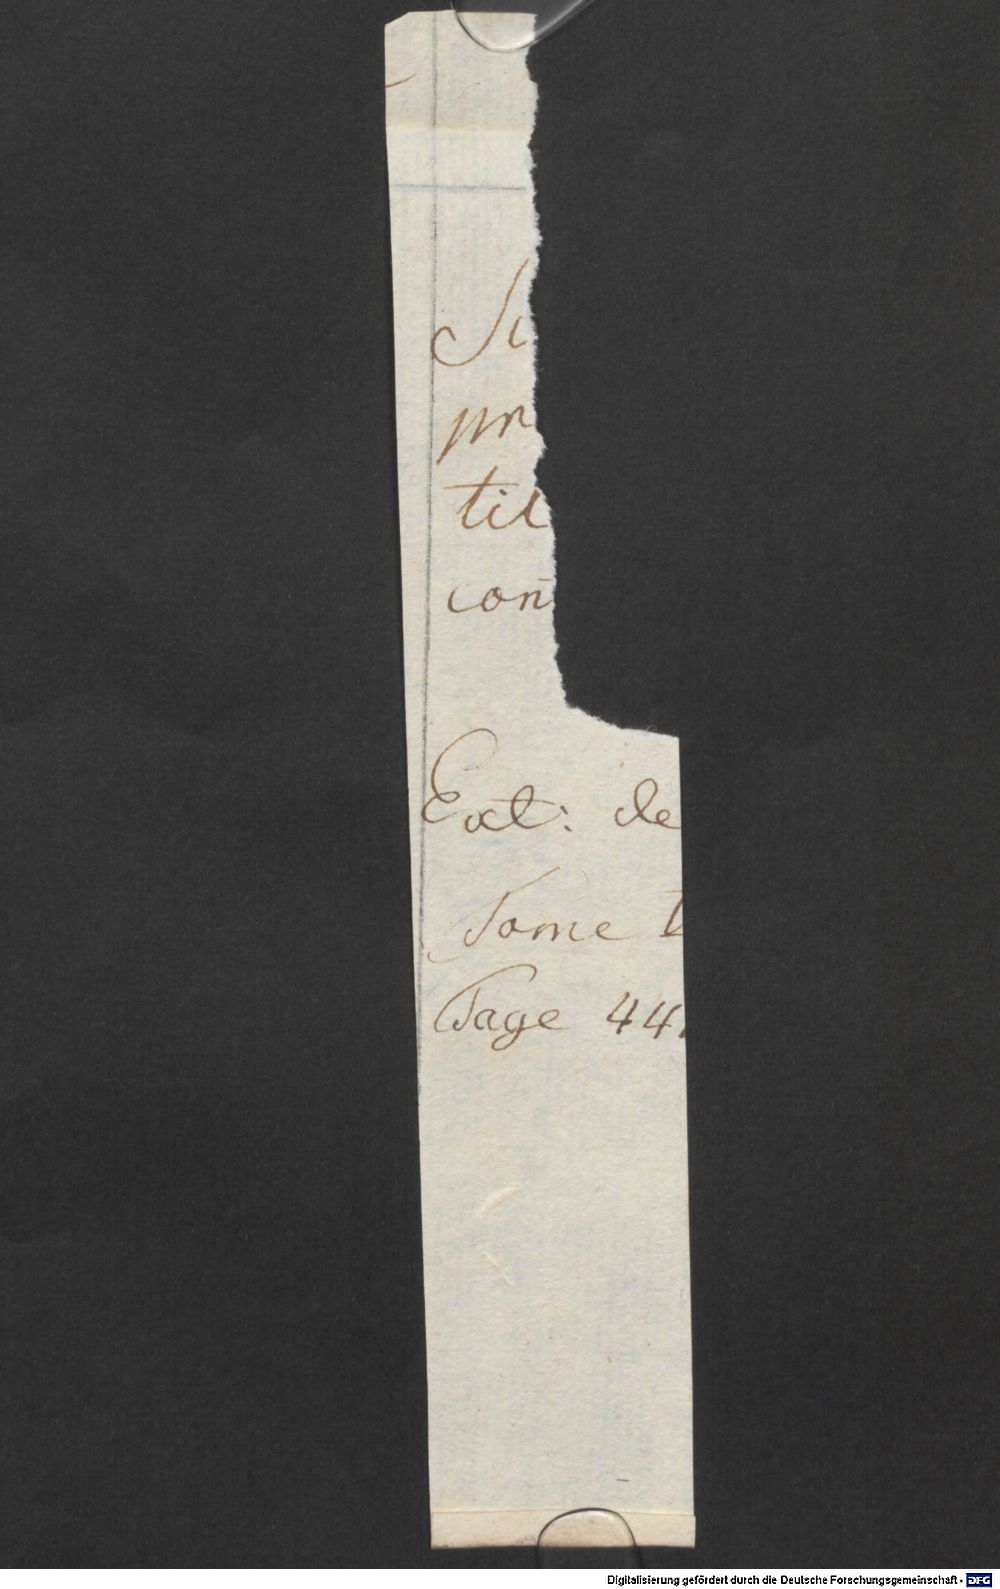 Su
pr
til
con
Ext: de
Tome
Page 44
Digitalisierung gefördert durch die Deutsche Forschungsgemeinschaft - DFG